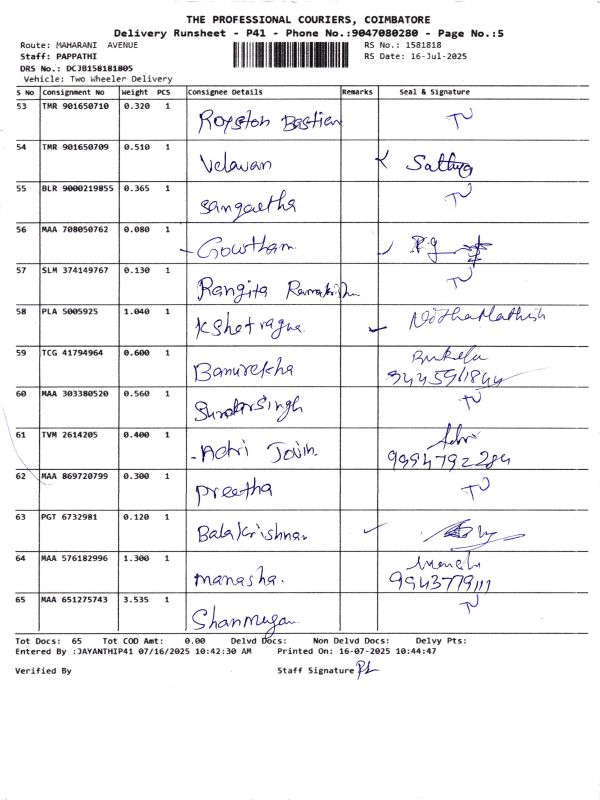 THE PROFESSIONAL COURIERS, COIMBATORE
Delivery Runsheet - P41 - Phone No.:9047080280 - Page No.:5
Route: MAHARANI AVENUE RS No.: 1581818
Staff: PAPPATHI RS Date: 16-Jul-2025
DRS No.: DCJB158181805
Vehicle: Two Wheeler Delivery
S No Consignment No Weight PCS Consignee Details Remarks Seal & Signature
53 TMR 901650710 0.320 1 Royston Bastian TV
54 TMR 901650709 0.510 1 Velavan Sathya
55 BLR 9000219855 0.365 1 Sangeetha TV
56 MAA 708050762 0.080 1 Gowtham
57 SLM 374149767 0.130 1 Rangita TV
58 PLA 5005925 1.040 1 Kshetragna
59 TCG 41794964 0.600 1 Banurekha
60 MAA 303380520 0.560 1 Sundarsingh TV
61 TVM 2614205 0.400 1 Adri
9994792284
62 MAA 869720799 0.300 1 Preetha TV
63 PGT 6732981 0.120 1 Balakrishnan
64 MAA 576182996 1.300 1 manasha.
9943779111
65 MAA 651275743 3.535 1 Shanmugam TV
Tot Docs: 65 Tot COD Amt: 0.00 Delvd Docs: Non Delvd Docs: Delvy Pts:
Entered By :JAYANTHIP41 07/16/2025 10:42:30 AM Printed On: 16-07-2025 10:44:47
Verified By Staff Signature